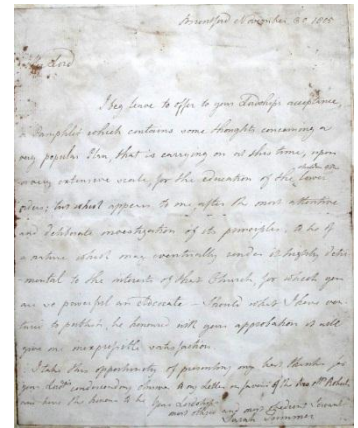 Brentford November 30 1805
My Lord
I beg leave to offer to your Lordships acceptance,
a Pamphlet which contains some thoughts concerning a
very popular Plan, that is carrying on at this time, upon
a very extensive scale, for the education of the lower
orders; but which appears to me, after the most attentive
and deliberate investigation of its principles, to be of
a nature which may eventually render it highly detri
mental to the interests of that Church, for which you
are so powerful an Advocate — Should what I have ven
tured to publish, be honoured with your approbation it will
give me inexpressible satisfaction.
I take this opportunity of presenting my best thanks for
your Lordps condescending answer to my letter in favour of the
and have the honour to be Your Lordships
most obliged and most Obedient Servant
Sarah Trimmer